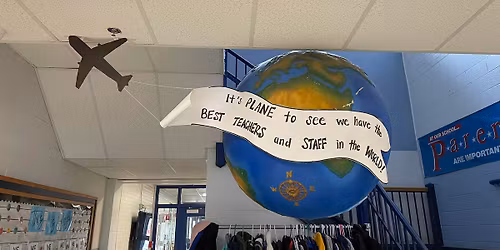 It's PLANE to see we have the
BEST TEACHERS and STAFF in the WORLD!
AT OUR SCHOOL...
Paren
ARE IMPORTANT